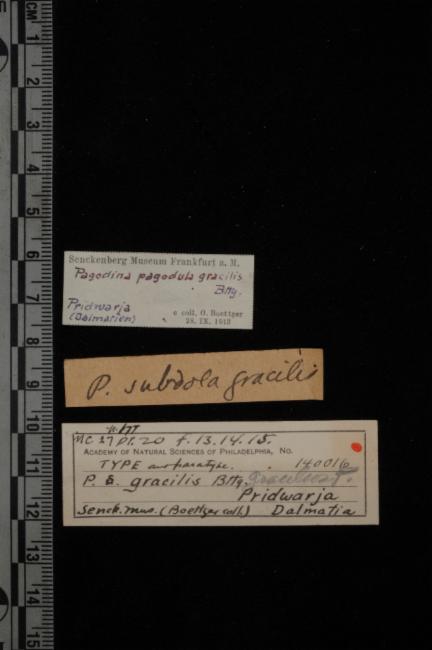 CM
1
2
3
4
5
6
7
8
9
10
11
12
13
14
15
Senckenberg Museum Frankfurt a. M.
Pagodina pagodula gracilis
Bttg.
Pridwarja
(Dalmatien)
e coll. O. Boettger
28. IX. 1913
P. subdola gracilis
MC 27 pl. 20 f. 13. 14. 15.
Academy of Natural Sciences of Philadelphia, No.
TYPE 140016
P. S. gracilis Bttg.
Pridwarja
Senck. mus. (Boettger coll.) Dalmatia